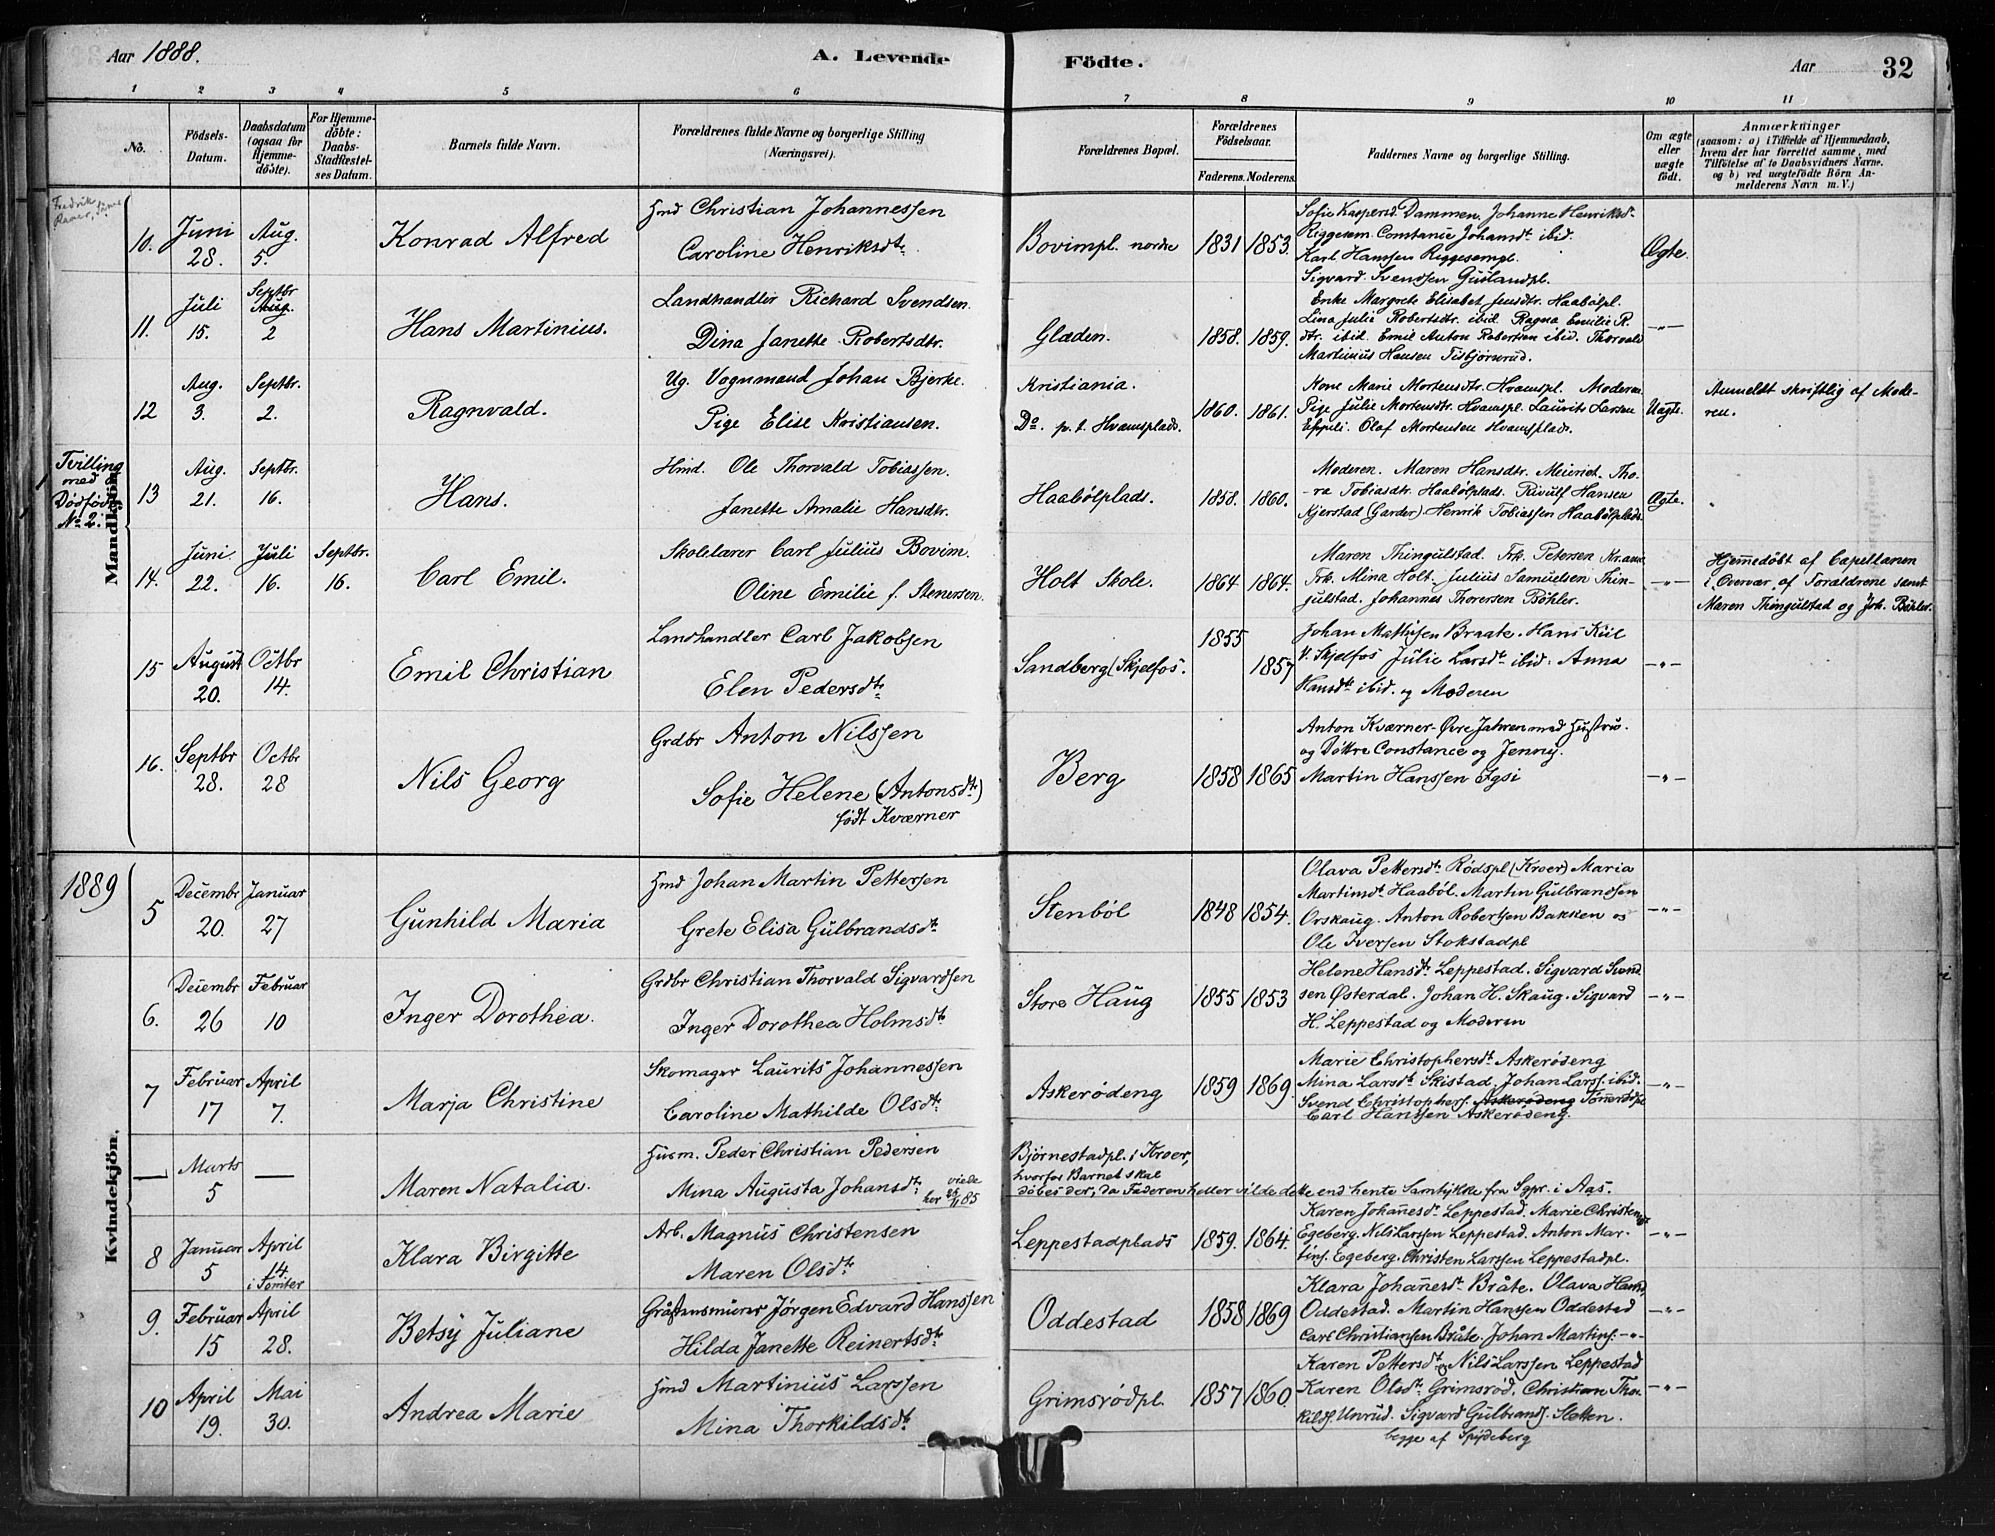 Aar 1888.
A. Levende
Födte.
Aar
32
1 2 3 4 5 6 7 8 9 10 11
No.
Födsels-Datum.
Daabsdatum (ogsaa for Hjemme-döbte).
For Hjemme-döbte: Daabs-Stadfæstel-ses Datum.
Barnets fulde Navn.
Forældrenes fulde Navne og borgerlige Stilling (Næringsvei).
Forældrenes Bopæl.
Forældrenes Födselsaar.
Faderens. Moderens.
Faddernes Navne og borgerlige Stilling.
Om ægte eller uægte födt.
Anmærkninger
(saasom: a) i Tilfælde af Hjemmedaab,
hvem der har forrettet samme, med
Tilföielse af to Daabsvidners Navne.
og b) ved uægtefödte Börn An-
melderens Navn m.V.)
Fredrik
Mandkjön.
10. Juni 28. Aug. 5.
Konrad Alfred
Hmd Christian Johannessen
Caroline Henriksdtr
Bovimpl. nordre
1831 1853.
Sofie Kaspersd. Dammen. Johanne Henriksdr
Riggesem. Constance Johansdtr ibid.
Karl Hanssen Riggesempl.
Sigvard Svendsen Guslandpl.
Ægte.
11. Juli 15. Septbr Aug. 2
Hans Martinius.
Landhandler Richard Svendsen.
Dina Janette Robertsdtr.
Glæden.
1858. 1859.
Enke Margrete Elisabet Jensdtr. Haabölpl.
Lina Julie Robertsdtr. ibid. Ragna Emilie R.
dtr. ibid. Emil Anton Robertsen ibid. Thorvald
Martinius Hansen Tisbjörnrud.
—"—
12 Aug. 3. Septbr. 2.
Ragnvald.
Ug. Vognmand Johan Bjerke.
Pige Elise Kristiansen.
Kristiania.
Do. p.t. Hvamsplads.
1860. 1861.
Kone Marie Mortensdtr. Hvamspl. Moderen.
Pige Julie Mortensdtr. Hvamspl. Laurits Larsen
Olaf Mortensen Hvamsplads.
Uægte.
Anmeldt skriftlig af Mode-
ren.
Tvilling
med
Dödfödt
No 2.
13 Aug. 21. Septbr. 16.
Hans.
Hmd. Ole Thorvald Tobiassen.
Janette Amalie Hansdtr.
Haabölplads.
1858. 1860.
Moderen. Maren Hansdtr. Meieriet. Tho-
ra Tobiasdtr. Haabölplads. Rivulf Hansen
Kjerstad (Garder). Henrik Tobiassen Haabölplads.
Ægte.
14. Juni 22. Juli 16. Septbr. 16.
Carl Emil.
Skolelærer Carl Julius Bovim.
Oline Emilie f. Stenersen.
Holt Skole.
1864 1864.
Maren Thingulstad. Frk. Petersen Kr.ania
Frk. Mina Holt. Julius Samuelsen Thin-
gulstad. Johannes Thoresen Böhler.
—"—
Hjemmedöbt af Capellanen
i Overvær af Forældrene samt
Maren Thingulstad og Joh. Böhler.
15 August 20. Octbr 14.
Emil Christian
Landhandler Carl Jakobsen
Elen Pedersdtr
Sandberg (Skjelfos.
1855 1857
Johan Mathisen Braate. Hans Kiil
v. Skjelfos Julie Larsdtr ibid. Anna
Hansdtr ibid. og Moderen
—"—
16. Septbr 28. Octbr 28
Nils Georg
Grdbr Anton Nilssen
Sofie Helene (Antonsdtr)
født Kværner
Berg
1858 1865
Anton Kværner-Øvre Jahren med Hustru.
og Döttre Constance og Jenny.
Martin Hanssen Igsi
—"—
1889
Kvindekjön.
5 Decembr 20. Januar 27
Gunhild Maria
Hmd Johan Martin Pettersen
Grete Elisa Gulbrandsdtr
Stenböl
1848 1854.
Olava Pettersdtr Rödspl (Kroer) Maria
Martinsdtr Haaböl. Martin Gulbrandsen
Orskaug. Anton Robertsen Bakken og
Ole Iversen Stokstadpl
—"—
6. Decembr 26 Februar 10
Inger Dorothea.
Grdbr Christian Thorvald Sigvardsen
Inger Dorothea Holmsdtr
Store Haug
1855 1853
Helene Hansdtr Leppestad. Sigvard Svend
sen Østerdal. Johan H. Skaug. Sigvard
H. Leppestad og Moderen
—"—
7 Februar 17 April 7.
Marja Christine
Skomager Laurits Johannessen
Caroline Mathilde Olsdtr
Askerödeng
1859 1869.
Marie Christophersdtr Askerödeng
Mina Larsdtr Skistad. Johan Larss. ibid.
Svend Christophers. Askerödeng Tömmeråspl
Carl Hanssen Askerödeng.
—"—
— Marts 5 —
Maren Natalia.
Husm. Peder Christian Pedersen
Mina Augusta Johansdtr viede her 25/11 85
Björnestadpl. i Kroer,
hvorfor Barnet skal
döbes der, da Faderen heller vilde dette end hente Samtykke fra Sgpr. i Aas.
8 Januar 5 April 14. i Tomter
Klara Birgitte
Arb. Magnus Christensen
Maren Olsdtr
Leppestadplads
1859. 1864.
Karen Johannesdtr Leppestad. Marie Christensdtr
Egeberg. Nils Larssen Leppestad. Anton Mar-
tins. Egeberg. Christen Larssen Leppestadpl.
—"—
9. Februar 15 April 28.
Betsy Juliane
Gråstensmurer Jörgen Edvard Hanssen
Hilda Janette Reinertsdtr
Oddestad
1858 1869
Klara Johannesdtr Bråte. Olava Hansd.
Oddestad. Martin Hanssen Oddestad
Carl Christiansen Bråte. Johan Martins. —"—
—"—
10 April 19. Mai 30.
Andrea Marie
Hmd Martinius Larssen
Mina Thorkildsdtr
Grimsrödpl.
1857 1860
Karen Pettersdtr og Nils Larssen Leppestad
Karen Olsdtr Grimsröd. Christian Thor-
kilds. Unrud. Sigvard Gulbrands. Sletten.
begge af Spydeberg
—"—